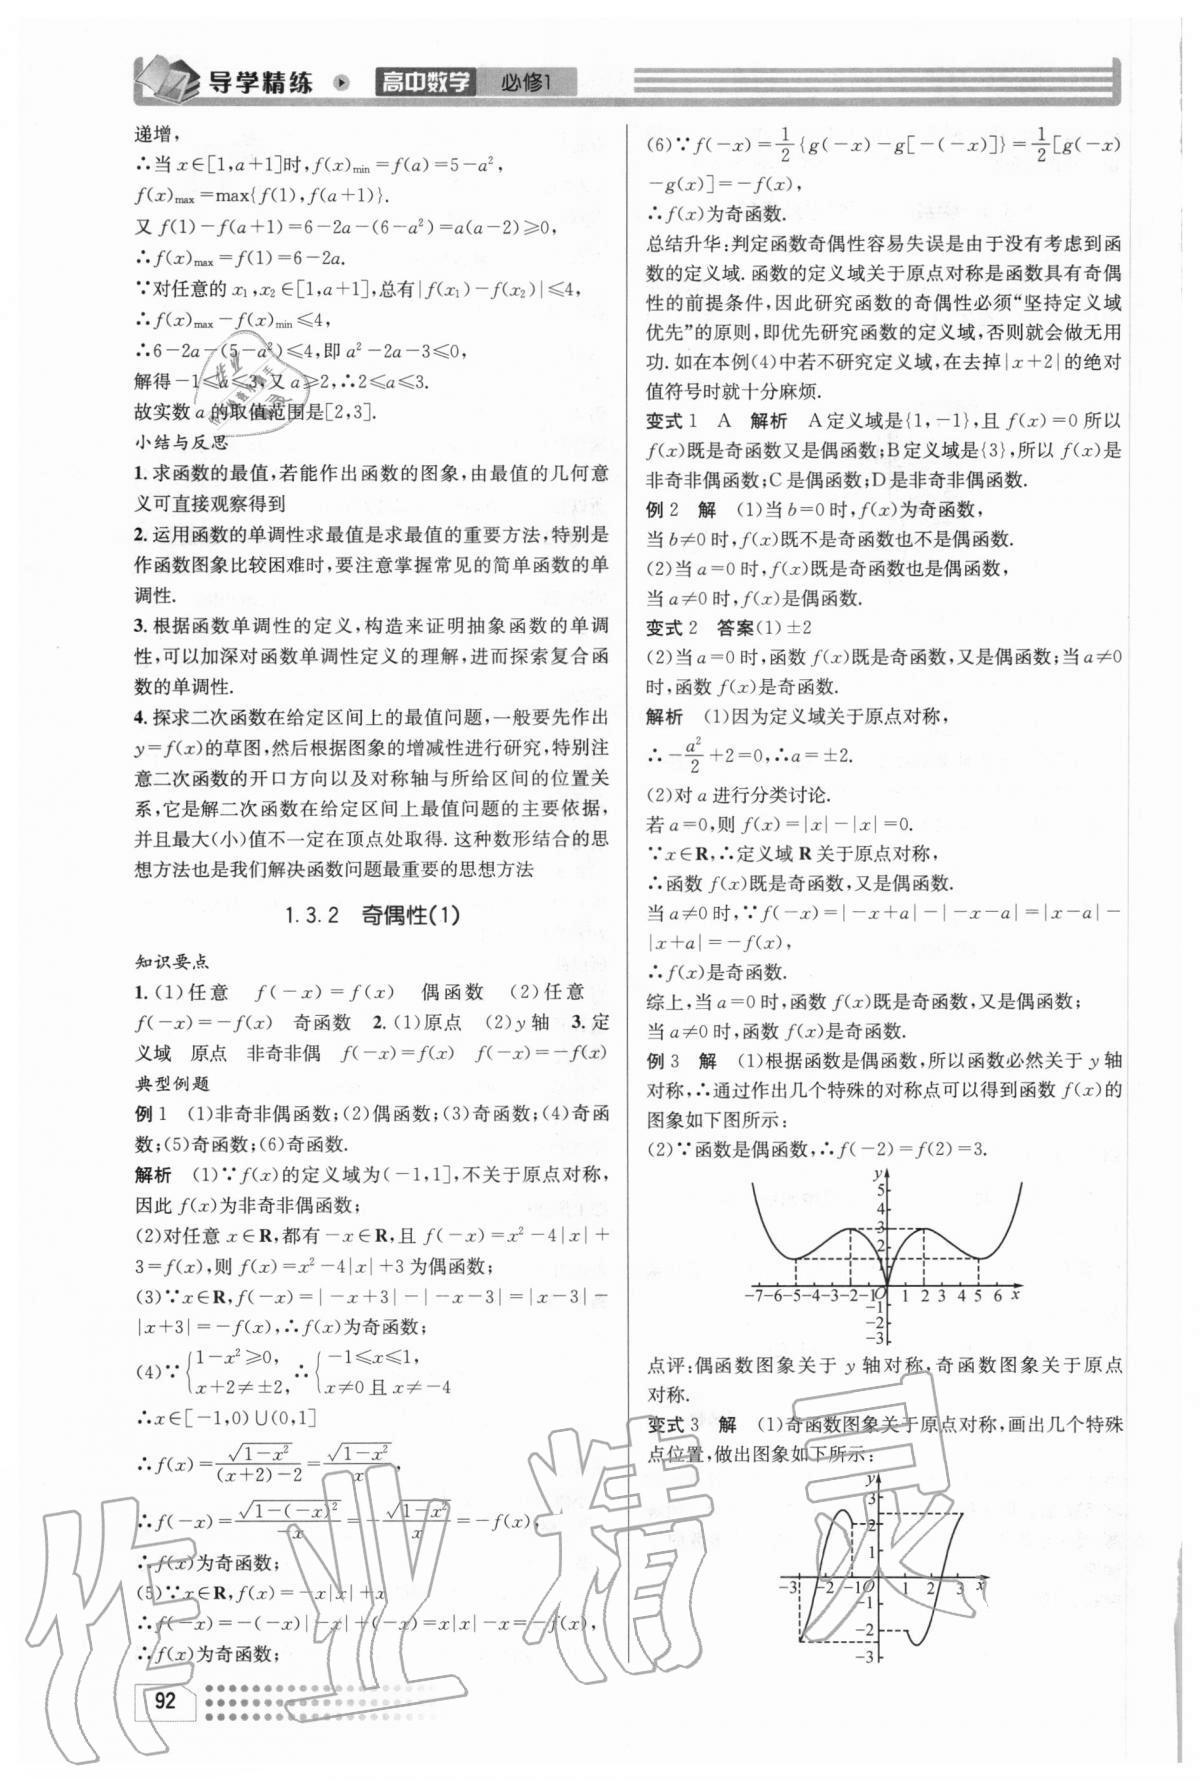 导学精练 高中数学 必修1
递增,
∴当 x∈[1,a+1]时,f(x)min=f(a)=5-a²,
f(x)max=max{f(1),f(a+1)}.
又 f(1)-f(a+1)=6-2a-(6-a²)=a(a-2)≥0,
∴f(x)max=f(1)=6-2a.
∵对任意的 x₁,x₂∈[1,a+1],总有|f(x₁)-f(x₂)|≤4,
∴f(x)max-f(x)min≤4,
∴6-2a-(5-a²)≤4,即 a²-2a-3≤0,
解得-1≤a≤3,又 a≥2,∴2≤a≤3.
故实数 a 的取值范围是[2,3].
小结与反思
1.求函数的最值,若能作出函数的图象,由最值的几何意
义可直接观察得到
2.运用函数的单调性求最值是求最值的重要方法,特别是
作函数图象比较困难时,要注意掌握常见的简单函数的单
调性.
3.根据函数单调性的定义,构造来证明抽象函数的单调
性,可以加深对函数单调性定义的理解,进而探索复合函
数的单调性.
4.探求二次函数在给定区间上的最值问题,一般要先作出
y=f(x)的草图,然后根据图象的增减性进行研究,特别注
意二次函数的开口方向以及对称轴与所给区间的位置关
系,它是解二次函数在给定区间上最值问题的主要依据,
并且最大(小)值不一定在顶点处取得. 这种数形结合的思
想方法也是我们解决函数问题最重要的思想方法
1.3.2 奇偶性(1)
知识要点
1.(1)任意 f(-x)=f(x) 偶函数 (2)任意
f(-x)=-f(x) 奇函数 2.(1)原点 (2)y 轴 3.定
义域 原点 非奇非偶 f(-x)=f(x) f(-x)=-f(x)
典型例题
例1 (1)非奇非偶函数;(2)偶函数;(3)奇函数;(4)奇函
数;(5)奇函数;(6)奇函数.
解析 (1)∵f(x)的定义域为(-1,1],不关于原点对称,
因此 f(x)为非奇非偶函数;
(2)对任意 x∈R,都有-x∈R,且 f(-x)=x²-4|x|+
3=f(x),则 f(x)=x²-4|x|+3 为偶函数;
(3)∵x∈R,f(-x)=|-x+3|-|-x-3|=|x-3|-
|x+3|=-f(x),∴f(x)为奇函数;
(4)∵{1-x²≥0, x+2≠±2, ∴{-1≤x≤1, x≠0 且 x≠-4
∴x∈[-1,0)∪(0,1]
∴f(x)=√(1-x²)/((x+2)-2)=√(1-x²)/x,
∴f(-x)=√(1-(-x)²)/(-x)=-√(1-x²)/x=-f(x),
∴f(x)为奇函数;
(5)∵x∈R,f(x)=-x|x|+x
∴f(-x)=-(-x)|-x|+(-x)=x|x|-x=-f(x),
∴f(x)为奇函数;
(6)∵f(-x)=1/2{g(-x)-g[-(-x)]}=1/2[g(-x)
-g(x)]=-f(x),
∴f(x)为奇函数.
总结升华:判定函数奇偶性容易失误是由于没有考虑到函
数的定义域. 函数的定义域关于原点对称是函数具有奇偶
性的前提条件,因此研究函数的奇偶性必须“坚持定义域
优先”的原则,即优先研究函数的定义域,否则就会做无用
功. 如在本例(4)中若不研究定义域,在去掉|x+2|的绝对
值符号时就十分麻烦.
变式1 A 解析 A 定义域是{1,-1},且 f(x)=0 所以
f(x)既是奇函数又是偶函数;B 定义域是{3},所以 f(x)是
非奇非偶函数;C 是偶函数;D 是非奇非偶函数.
例2 解 (1)当 b=0 时,f(x)为奇函数,
当 b≠0 时,f(x)既不是奇函数也不是偶函数.
(2)当 a=0 时,f(x)既是奇函数也是偶函数,
当 a≠0 时,f(x)是偶函数.
变式2 答案(1)±2
(2)当 a=0 时,函数 f(x)既是奇函数,又是偶函数;当 a≠0
时,函数 f(x)是奇函数.
解析 (1)因为定义域关于原点对称,
∴-a²/2+2=0,∴a=±2.
(2)对 a 进行分类讨论.
若 a=0,则 f(x)=|x|-|x|=0.
∵x∈R,∴定义域 R 关于原点对称,
∴函数 f(x)既是奇函数,又是偶函数,
当 a≠0 时,∵f(-x)=|-x+a|-|-x-a|=|x-a|-
|x+a|=-f(x),
∴f(x)是奇函数.
综上,当 a=0 时,函数 f(x)既是奇函数,又是偶函数;
当 a≠0 时,函数 f(x)是奇函数.
例3 解 (1)根据函数是偶函数,所以函数必然关于 y 轴
对称,∴通过作出几个特殊的对称点可以得到函数 f(x)的
图象如下图所示:
(2)∵函数是偶函数,∴f(-2)=f(2)=3.
y
5
4
3
2
-7-6-5-4-3-2-1O 1 2 3 4 5 6 x
-1
-2
-3
点评:偶函数图象关于 y 轴对称,奇函数图象关于原点
对称.
变式3 解 (1)奇函数图象关于原点对称,画出几个特殊
点位置,做出图象如下所示:
y
3
2
1
-3 -2 -1O 1 2 3 x
-1
-2
-3
92
作业精灵